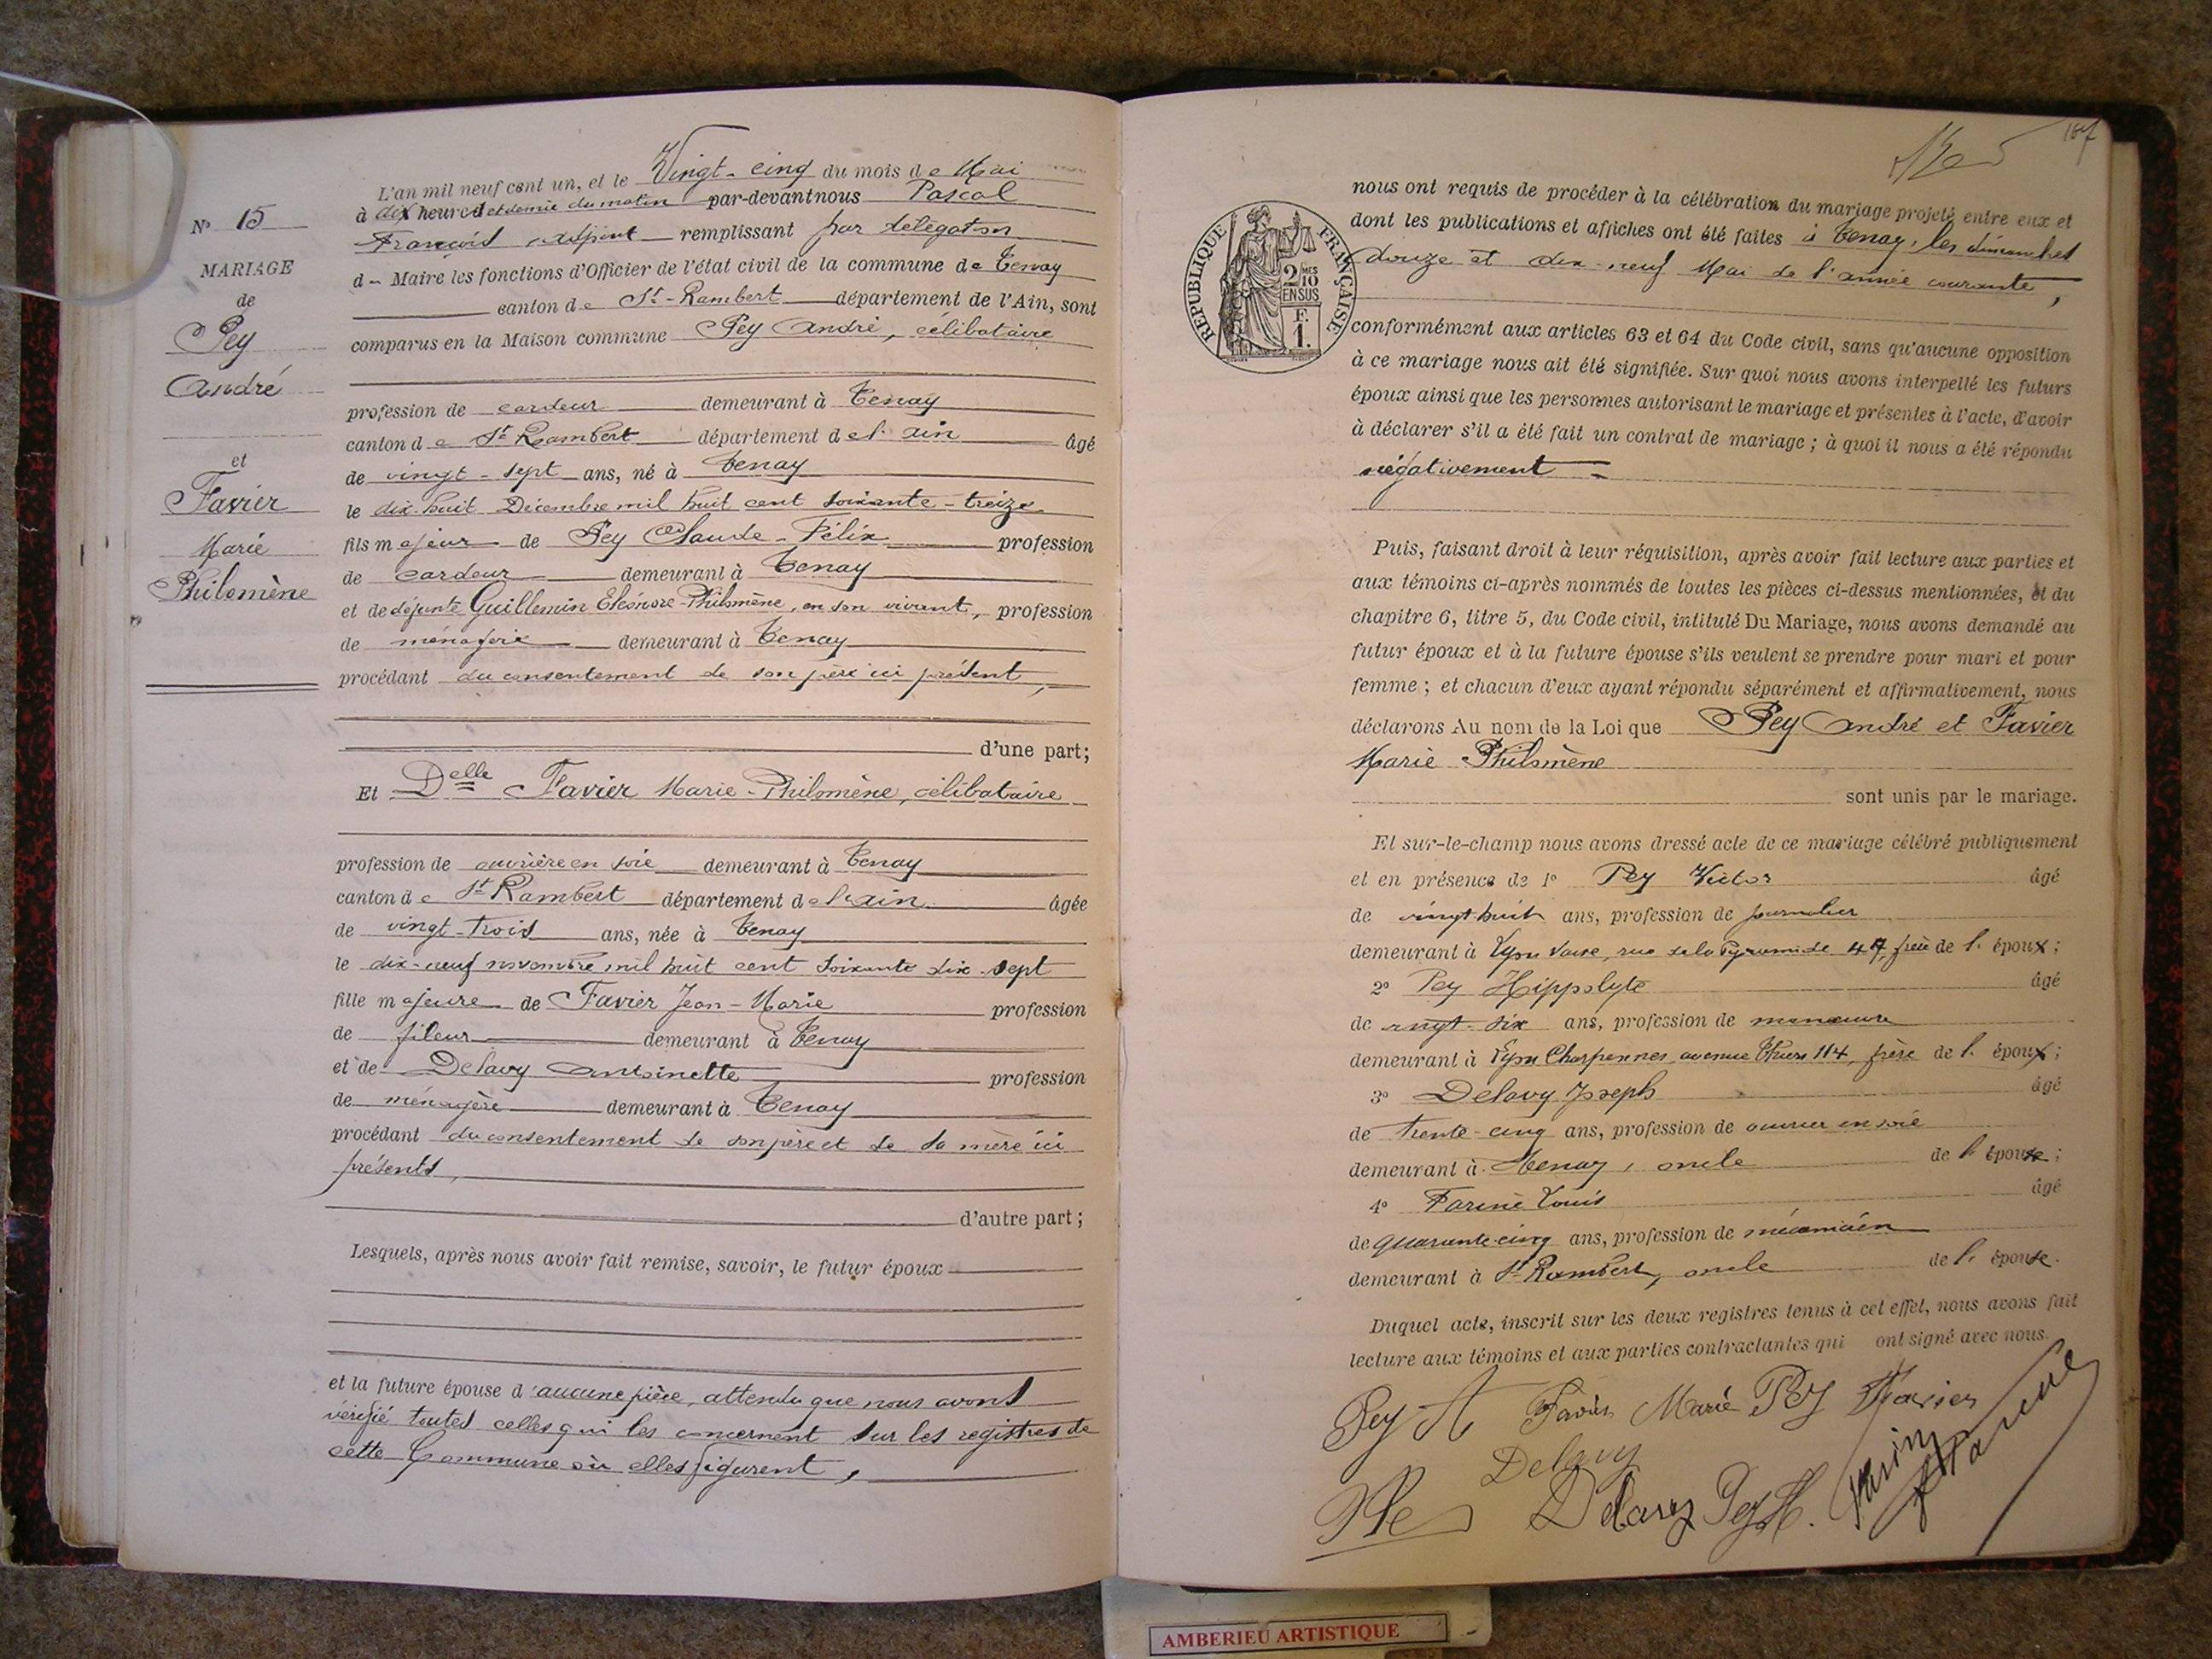 N° 15
MARIAGE
de
Pey
André
et
Favier
Marie
Philomène
L'an mil neuf cent un, et le Vingt-cinq du mois de Mai
à dix heures et demie du matin par-devant nous Pascal
François adjoint remplissant par délégation
d- Maire les fonctions d'Officier de l'état civil de la commune de Tenay
canton de St-Rambert département de l'Ain, sont
comparus en la Maison commune Pey André, célibataire
profession de cardeur demeurant à Tenay
canton de St Rambert département de l'ain âgé
de vingt-sept ans, né à Tenay
le dix huit Décembre mil huit cent soixante-treize
fils majeur de Pey Claude-Félix profession
de cardeur demeurant à Tenay
et de défunte Guillemin Eléonore-Philomène, en son vivant, profession
de ménagère demeurant à Tenay
procédant du consentement de son père ici présent,
d'une part;
Et Delle Favier Marie-Philomène, célibataire
profession de ouvrière en soie demeurant à Tenay
canton de St Rambert département de l'ain âgée
de vingt-trois ans, née à Tenay
le dix-neuf novembre mil huit cent soixante dix-sept
fille majeure de Favier Jean-Marie profession
de fileur demeurant à Tenay
et de Delavy Antoinette profession
de ménagère demeurant à Tenay
procédant du consentement de son père et de sa mère ici
présents,
d'autre part;
Lesquels, après nous avoir fait remise, savoir, le futur époux
et la future épouse d'aucune pièce, attendu que nous avons
vérifié toutes celles qui les concernent sur les registres de
cette Commune où elles figurent,
167
REPUBLIQUE FRANÇAISE
2/10 MES
EN SUS
F.
1.
nous ont requis de procéder à la célébration du mariage projeté entre eux et
dont les publications et affiches ont été faites à Tenay, les dimanches
douze et dix-neuf Mai de l'année courante,
conformément aux articles 63 et 64 du Code civil, sans qu'aucune opposition
à ce mariage nous ait été signifiée. Sur quoi nous avons interpellé les futurs
époux ainsi que les personnes autorisant le mariage et présentes à l'acte, d'avoir
à déclarer s'il a été fait un contrat de mariage; à quoi il nous a été répondu
négativement
Puis, faisant droit à leur réquisition, après avoir fait lecture aux parties et
aux témoins ci-après nommés de toutes les pièces ci-dessus mentionnées, et du
chapitre 6, titre 5, du Code civil, intitulé Du Mariage, nous avons demandé au
futur époux et à la future épouse s'ils veulent se prendre pour mari et pour
femme; et chacun d'eux ayant répondu séparément et affirmativement, nous
déclarons Au nom de la Loi que Pey André et Favier
Marie Philomène
sont unis par le mariage.
Et sur-le-champ nous avons dressé acte de ce mariage célébré publiquement
et en présence de 1° Pey Victor âgé
de vingt huit ans, profession de journalier
demeurant à Lyon Vaise, rue de la Pyramide 47, frère de l'époux;
2° Pey Hippolyte âgé
de vingt-six ans, profession de manœuvre
demeurant à Lyon Charpennes, avenue Thiers 114, frère de l'époux;
3° Delavy Joseph âgé
de trente-cinq ans, profession de ouvrier en soie
demeurant à Tenay, oncle de l'épouse;
4° Farine Louis âgé
de quarante-cinq ans, profession de mécanicien
demeurant à St Rambert, oncle de l'épouse.
Duquel acte, inscrit sur les deux registres tenus à cet effet, nous avons fait
lecture aux témoins et aux parties contractantes qui ont signé avec nous.
Pey A Favier Marie Pey Favier
Delavy
Delavy Pey H. Farine
AMBERIEU ARTISTIQUE